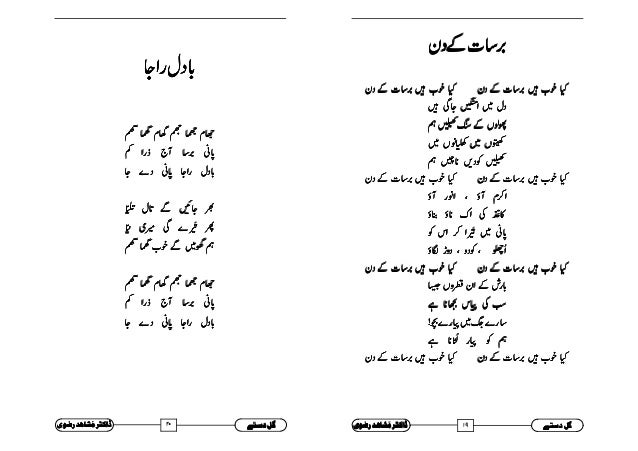 برسات کے دن
کیا خوب ہیں برسات کے دن کیا خوب ہیں برسات کے دن
دل میں امنگیں جاگی ہیں
پھولوں کے سنگ کھیلیں ہم
کھیتوں میں کھلیانوں میں
کھیلیں کودیں ناچیں ہم
کیا خوب ہیں برسات کے دن کیا خوب ہیں برسات کے دن
اکرم آؤ ، انور آؤ
کاغذ کی اک ناؤ بناؤ
پانی میں تیرا کر اس کو
اُچھلو ، کودو ، دوڑ لگاؤ
کیا خوب ہیں برسات کے دن کیا خوب ہیں برسات کے دن
بارش کے ان قطروں جیسا
سب کی پیاس بجھانا ہے
سارے جگ میں پیارے بچو!
ہم کو پیار لُٹانا ہے
کیا خوب ہیں برسات کے دن کیا خوب ہیں برسات کے دن
گل دستے ۱۹ ڈاکٹر مُشاہد رضوی
بادل راجا
چھام چھما چھم گھام گھما گھم
پانی برسا آج ذرا کم
بادل راجا پانی دے جا
بھر جائیں گے تال تلیّا
پھر تیرے گی میری نیّا
ہم گھومیں گے خوب گھما گھم
چھام چھما چھم گھام گھما گھم
پانی برسا آج ذرا کم
بادل راجا پانی دے جا
گل دستے ۲۰ ڈاکٹر مُشاہد رضوی